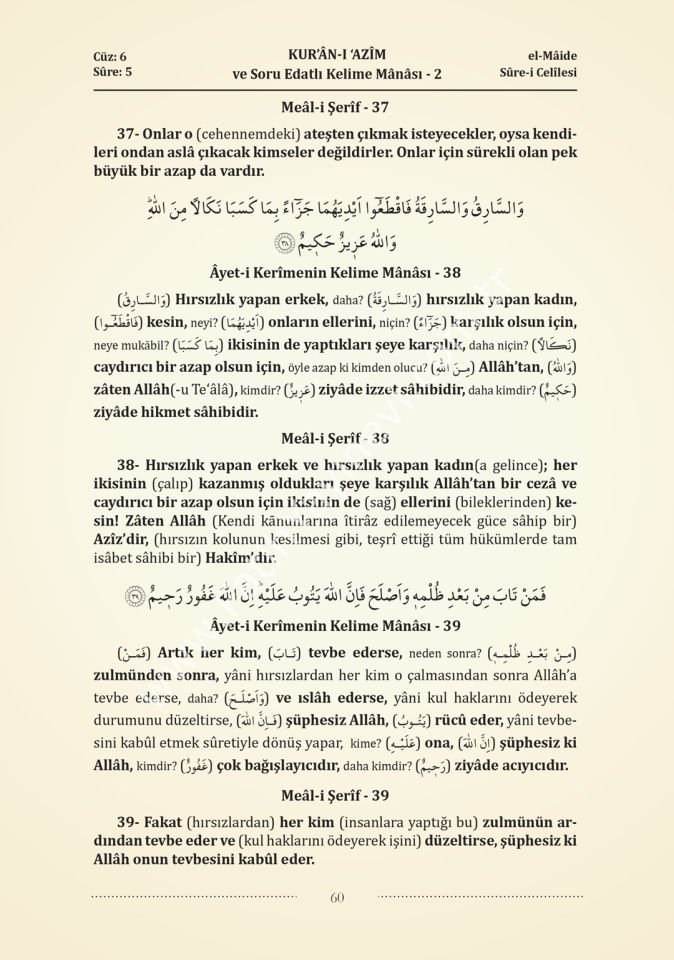 Cüz: 6
KUR’ÂN-I ‘AZÎM
el-Mâide
Sûre: 5
ve Soru Edatlı Kelime Mânâsı - 2
Sûre-i Celîlesi
Meâl-i Şerîf - 37
37- Onlar o (cehennemdeki) ateşten çıkmak isteyecekler, oysa kendi-
leri ondan aslâ çıkacak kimseler değildirler. Onlar için sürekli olan pek
büyük bir azap da vardır.
وَالسَّارِقُ وَالسَّارِقَةُ فَاقْطَعُٓوا اَيْدِيَهُمَا جَزَٓاءً بِمَا كَسَبَا نَكَالًا مِنَ اللّٰهِۜ
وَاللّٰهُ عَزِيزٌ حَكِيمٌ ﴿٣٨﴾
Âyet-i Kerîmenin Kelime Mânâsı - 38
(وَالسَّـارِقُ) Hırsızlık yapan erkek, daha? (وَالسَّـارِقَةُ) hırsızlık yapan kadın,
(فَاقْطَعُٓـوا) kesin, neyi? (اَيْدِيَهُمَا) onların ellerini, niçin? (جَزَٓاءً) karşılık olsun için,
neye mukābil? (بِمَا كَسَبَا) ikisinin de yaptıkları şeye karşılık, daha niçin? (نَكَـالًا)
caydırıcı bir azap olsun için, öyle azap ki kimden olucu? (مِـنَ اللّٰهِ) Allâh’tan, (وَاللّٰهُ)
zâten Allâh(-u Te‘âlâ), kimdir? (عَزِيزٌ) ziyâde izzet sâhibidir, daha kimdir? (حَكِيمٌ)
ziyâde hikmet sâhibidir.
Meâl-i Şerîf - 38
38- Hırsızlık yapan erkek ve hırsızlık yapan kadın(a gelince); her
ikisinin (çalıp) kazanmış oldukları şeye karşılık Allâh’tan bir cezâ ve
caydırıcı bir azap olsun için ikisinin de (sağ) ellerini (bileklerinden) ke-
sin! Zâten Allâh (Kendi kānunlarına îtirâz edilemeyecek güce sâhip bir)
Azîz’dir, (hırsızın kolunun kesilmesi gibi, teşrî ettiği tüm hükümlerde tam
isâbet sâhibi bir) Hakîm’dir.
فَمَنْ تَابَ مِنْ بَعْدِ ظُلْمِهِ وَاَصْلَحَ فَاِنَّ اللّٰهَ يَتُوبُ عَلَيْهِۜ اِنَّ اللّٰهَ غَفُورٌ رَحِيمٌ ﴿٣٩﴾
Âyet-i Kerîmenin Kelime Mânâsı - 39
(فَمَنْ) Artık her kim, (تَابَ) tevbe ederse, neden sonra? (مِـنْ بَعْـدِ ظُلْمِـهِ)
zulmünden sonra, yâni hırsızlardan her kim o çalmasından sonra Allâh’a
tevbe ederse, daha? (وَاَصْلَـحَ) ve ıslâh ederse, yâni kul haklarını ödeyerek
durumunu düzeltirse, (فَـاِنَّ اللّٰهَ) şüphesiz Allâh, (يَتُوبُ) rücû eder, yâni tevbe-
sini kabûl etmek sûretiyle dönüş yapar, kime? (عَلَيْـهِ) ona, (اِنَّ اللّٰهَ) şüphesiz ki
Allâh, kimdir? (غَفُورٌ) çok bağışlayıcıdır, daha kimdir? (رَحِيمٌ) ziyâde acıyıcıdır.
Meâl-i Şerîf - 39
39- Fakat (hırsızlardan) her kim (insanlara yaptığı bu) zulmünün ar-
dından tevbe eder ve (kul haklarını ödeyerek işini) düzeltirse, şüphesiz ki
Allâh onun tevbesini kabûl eder.
60